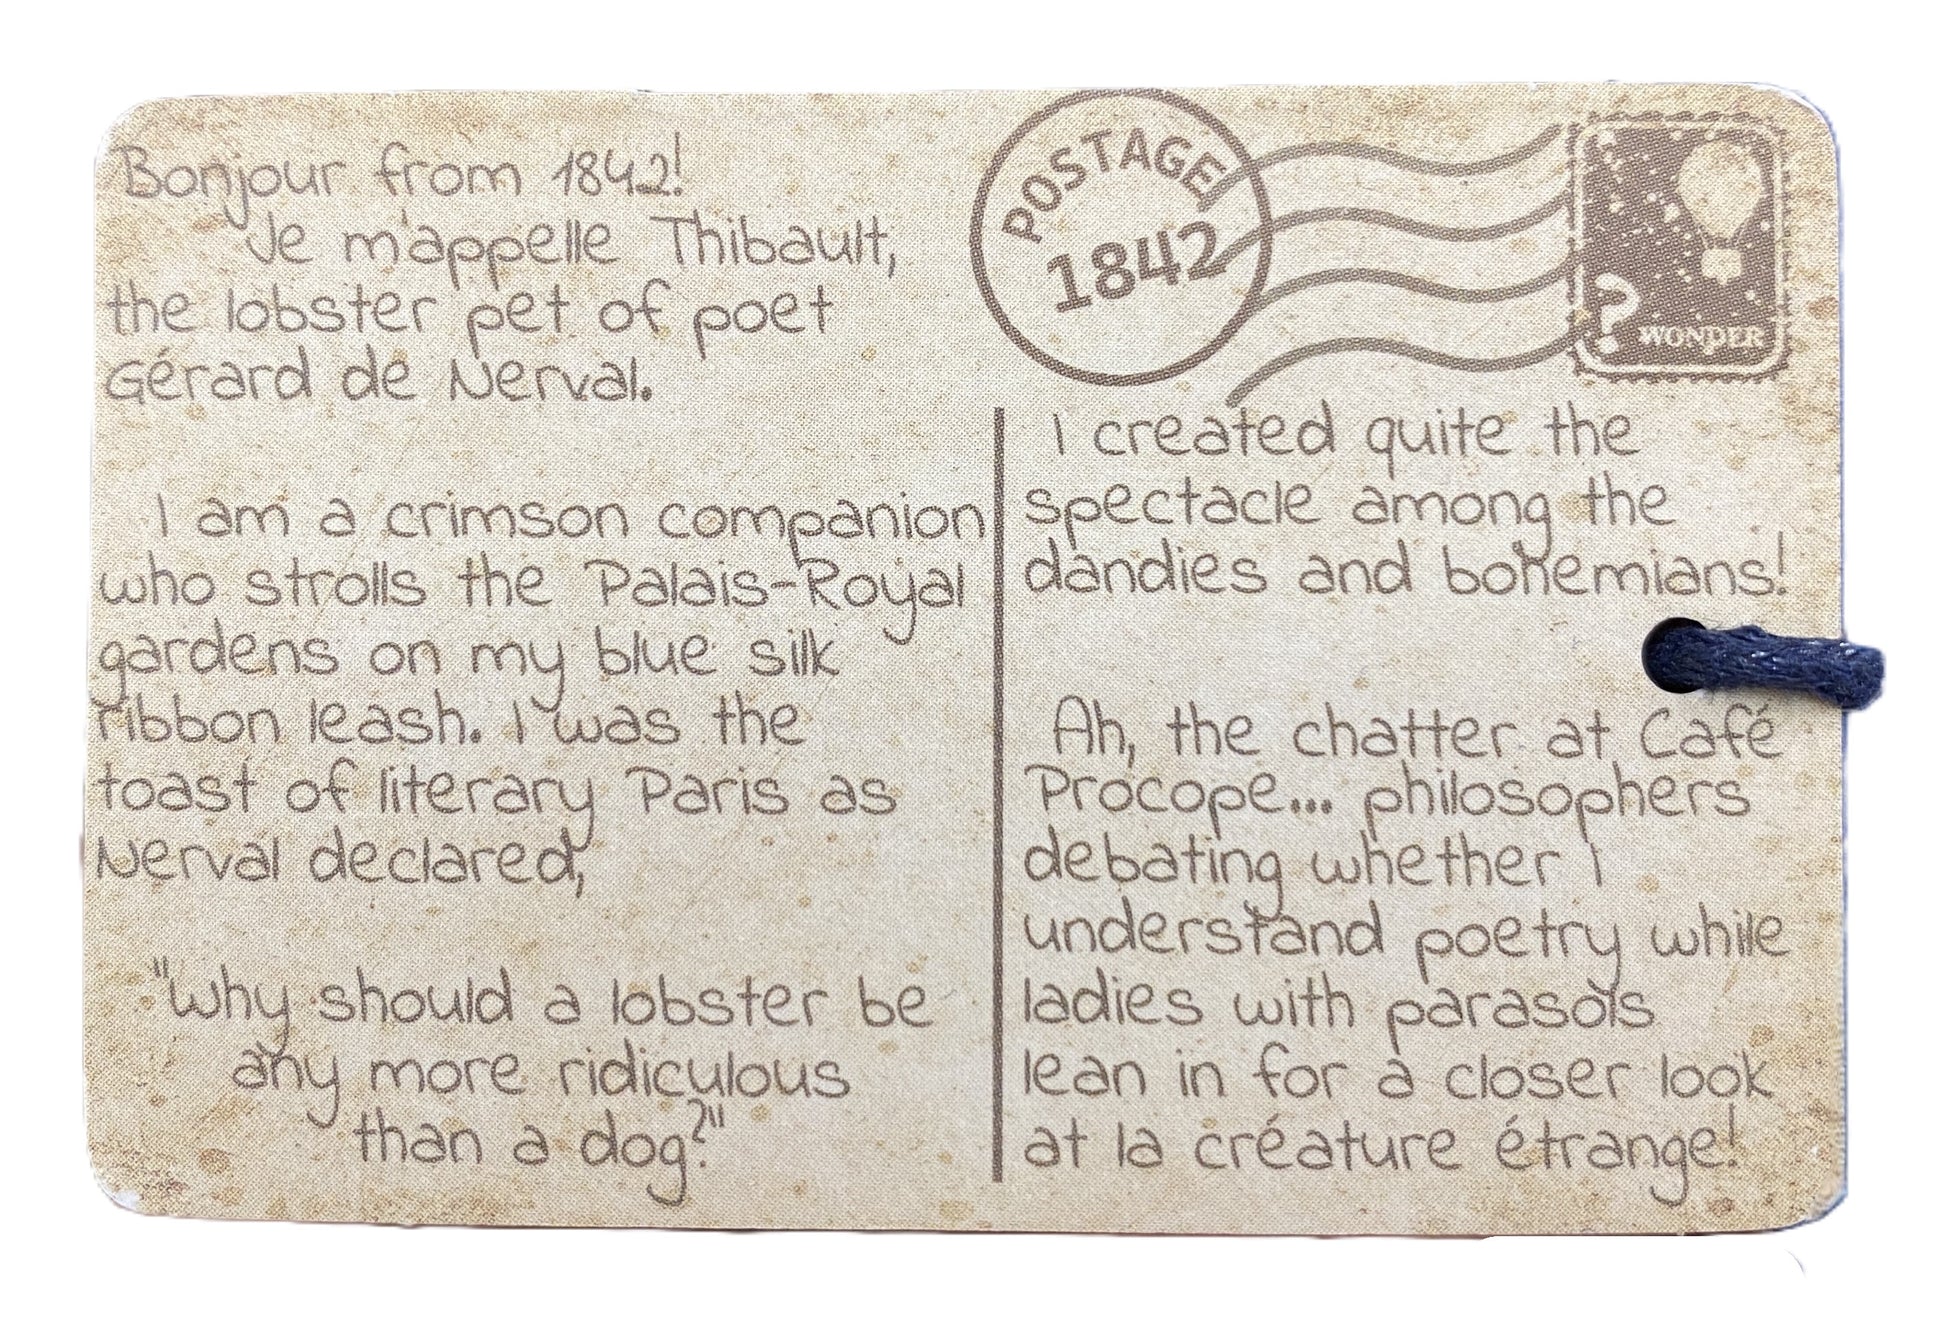 Bonjour from 1842!
Je m'appelle Thibault,
the lobster pet of poet
Gérard de Nerval.
I am a crimson companion
who strolls the Palais-Royal
gardens on my blue silk
ribbon leash. I was the
toast of literary Paris as
Nerval declared,
"Why should a lobster be
any more ridiculous
than a dog?"
POSTAGE
1842
? WONDER
I created quite the
spectacle among the
dandies and bohemians!
Ah, the chatter at Café
Procope... philosophers
debating whether I
understand poetry while
ladies with parasols
lean in for a closer look
at la créature étrange!